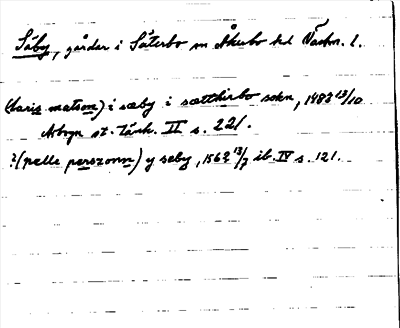 Säby, gårdar i Säterbo sn Åkerbo hd Västm. l.
(laris matson) i sæby i sættherbo sokn, 1483 13/10
Arboga st. Tänk. II s. 221.
?(pelle perszonn) y seby, 1563 13/7 ib. IV s. 121.